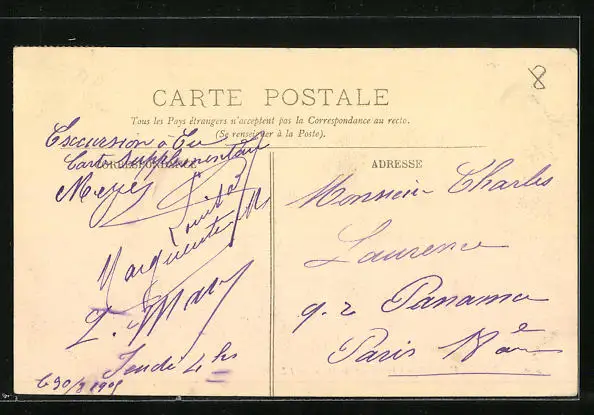 8
CARTE POSTALE
Tous les Pays étrangers n'acceptent pas la Correspondance au recto.
(Se renseigner à la Poste).
Excursion à Eu
Carte supplémentaire
CORRESPONDANCE
Louise
Marguerite
Jeudi 4 hs
ADRESSE
Monsieur Charles
Laurence
9. r Panama
Paris 18e